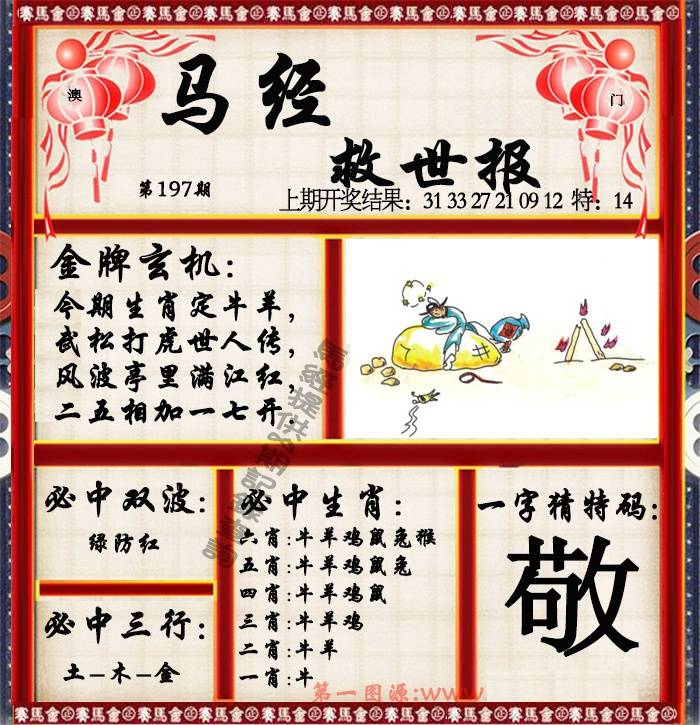 賽馬會 賽馬會 賽馬會 賽馬會 賽馬會 賽馬會 賽馬會 賽馬會 賽馬會
澳
门
马经
救世报
第197期
上期开奖结果：31 33 27 21 09 12 特：14
金牌玄机：
今期生肖定牛羊，
武松打虎世人传，
风波亭里满江红，
二五相加一七开.
必中双波：
绿防红
必中三行：
土–木–金
必中生肖：
六肖:牛羊鸡鼠兔猴
五肖:牛羊鸡鼠兔
四肖:牛羊鸡鼠
三肖:牛羊鸡
二肖:牛羊
一肖:牛
一字猜特码:
敬
第一图源:www